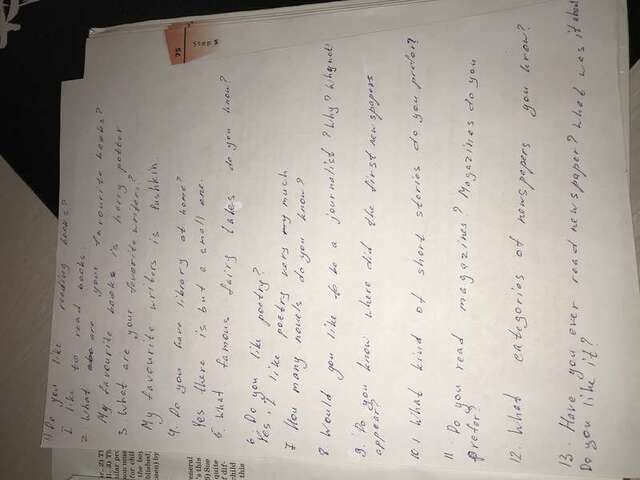 1) Do you like reading books?
I like to read books.
2. What are your favourite books?
My favourite books is herry potter
3. What are your favorite writers?
My favourite writers is Pushkin.
4. Do you have library at home?
Yes there is but a small one.
5. What famous fairy tales do you know?
6. Do you like poetry?
Yes, I like poetry very much
7. How many novels do you know?
8. Would you like to be a journalist? Why? Why not?
9. Do you know where did the first newspapers
appear?
10. What kind of short stories do you prefer?
11. Do you read magazines? Magazines do you
prefer?
12. What categories of newspapers you know?
13. Have you ever read newspaper? What was it about
Do you like it?
75
Step 5